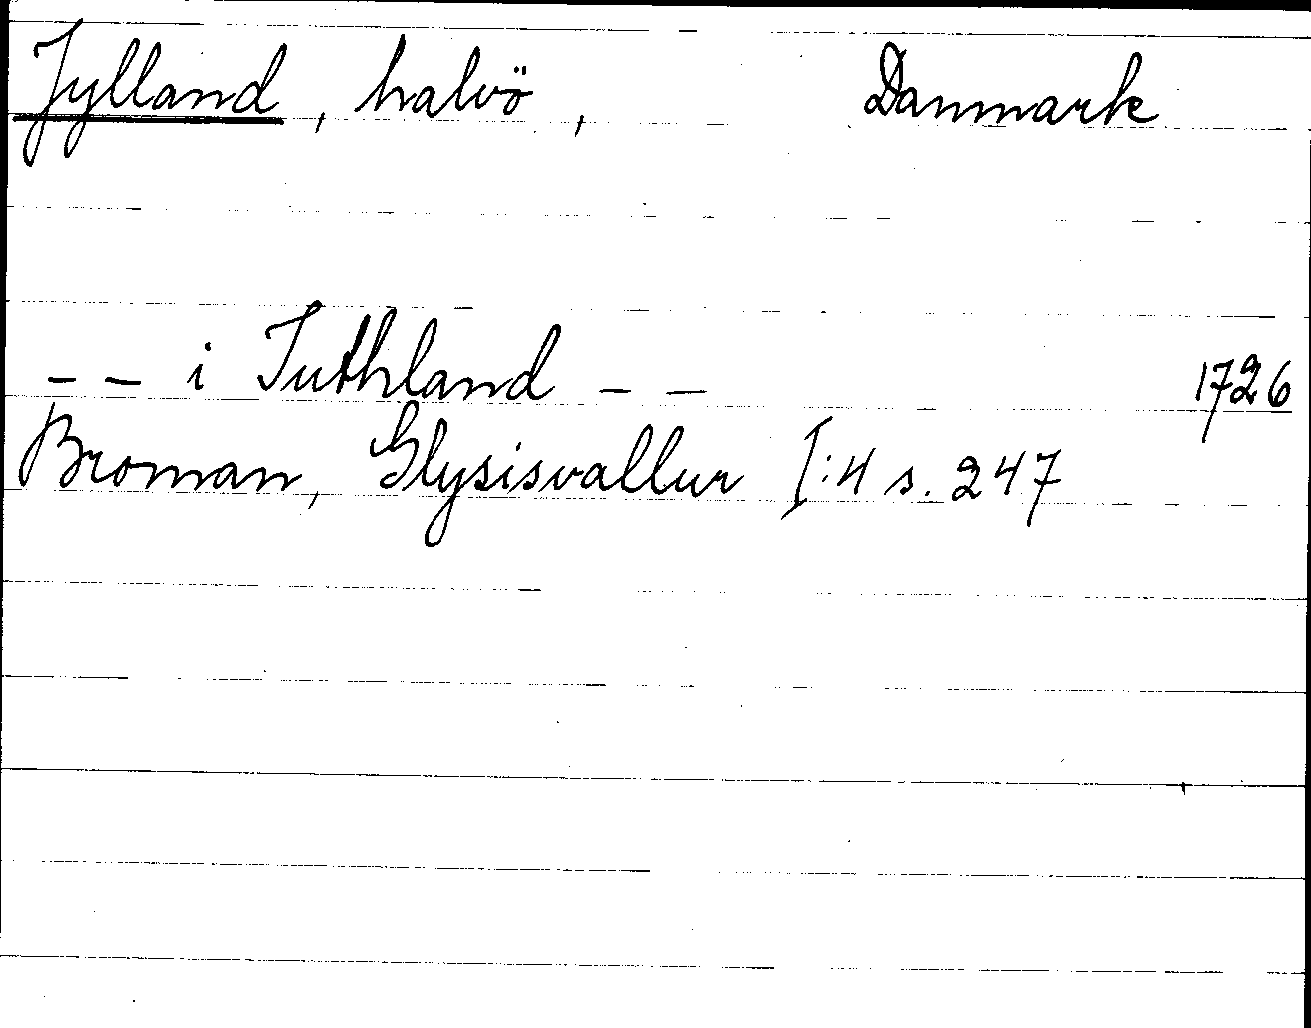 Jylland, halvö, Danmark
-- i Juthland -- 1726
Broman, Glysisvallur I:4 s. 247